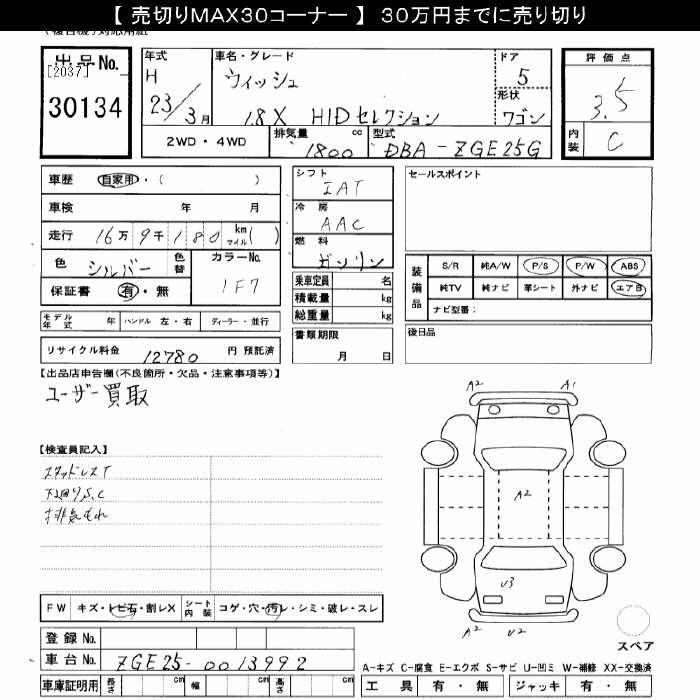 【 売切りMAX30コーナー 】 30万円までに売り切り
出品No.
[2037]
30134
年式
H
23/3月
車名・グレード
ウィッシュ
1.8X HIDセレクション
ドア
5
形状
ワゴン
評価点
3.5
内装
C
2WD・4WD
排気量
1800
cc
型式
DBA-ZGE25G
車歴 自家用・( )
車検 年 月
走行 16万9千180 km マイル( )
色 シルバー 色替
カラーNo.
1F7
保証書 有・無
シフト
IAT
冷房
AAC
燃料
ガソリン
乗車定員 名
積載量 kg
総重量 kg
セールスポイント
装備品
S/R 純A/W P/S P/W ABS
純TV 純ナビ 革シート 外ナビ エアB
ナビ型番:
モデル年式 年 ハンドル 左・右 ディーラー・並行
リサイクル料金 12780 円 預託済
書類期限
月 日
後日品
【出品店申告欄(不良箇所・欠品・注意事項等)】
ユーザー買取
【検査員記入】
スタッドレスT
下回りS,C
排気もれ
A2 A1
A2
U3
A2 U2
スペア
FW キズ・トビ石・割レX シート内装 コゲ・穴・汚レ・シミ・破レ・スレ
登録No.
車台No. ZGE25-0013992
A-キズ C-腐食 E-エクボ S-サビ U-凹ミ W-補修 XX-交換済
車庫証明用 長さ cm 幅 cm 高さ cm
工具 有・無 ジャッキ 有・無